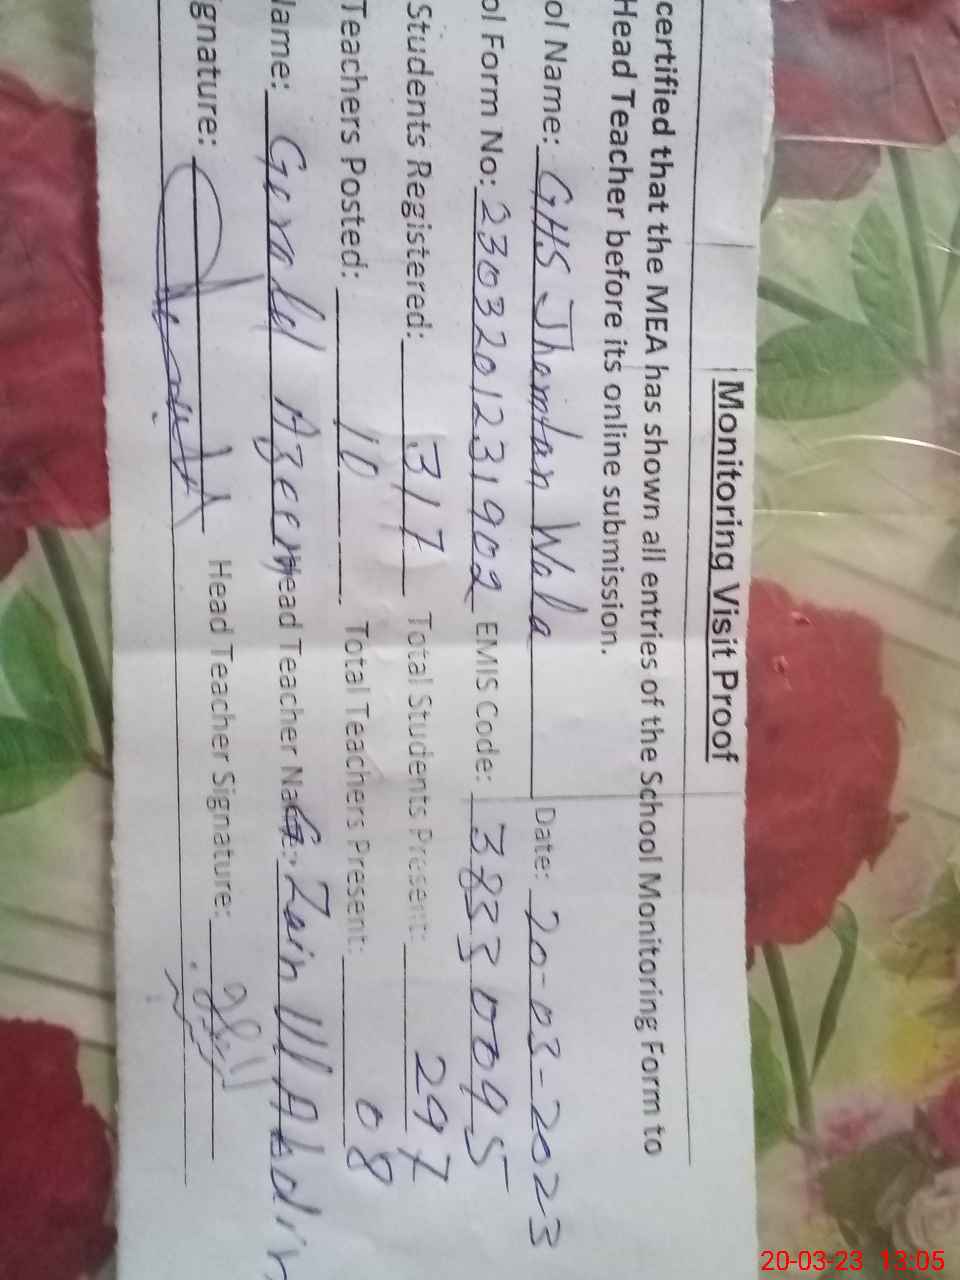 Monitoring Visit Proof
certified that the MEA has shown all entries of the School Monitoring Form to
Head Teacher before its online submission.
ol Name: GHS Jhamtan Wala Date: 20-03-2023
ol Form No: 2303201231902 EMIS Code: 38330095
Students Registered: 317 Total Students Present: 297
Teachers Posted: 10 Total Teachers Present: 08
Name: Azeem Head Teacher Zain Ul Abdin
ignature: Head Teacher Signature:
20-03-23 13:05